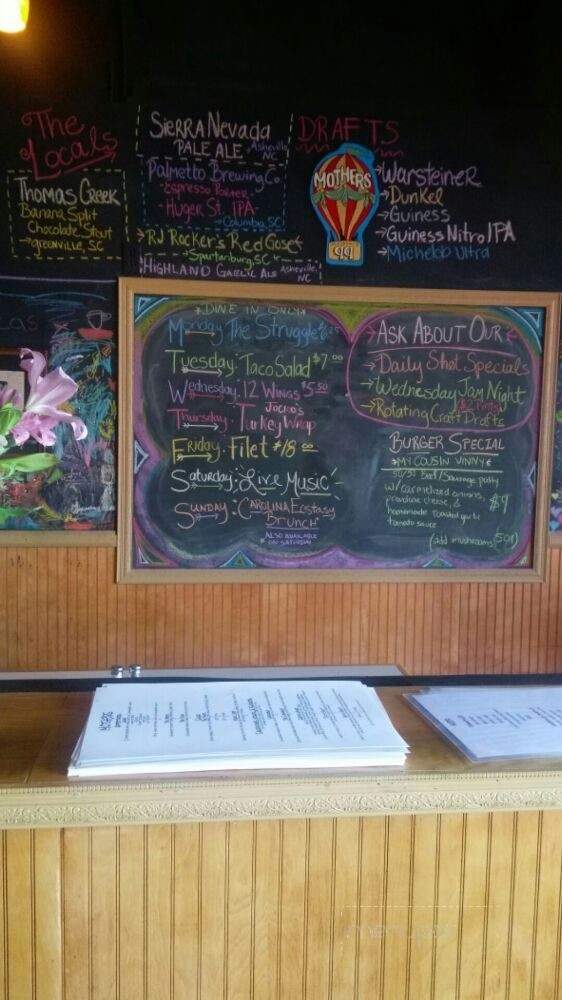 The
Locals
Thomas Creek
Banana Split
Chocolate Stout
greenville, SC
Sierra Nevada
PALE ALE - Asheville, NC
Palmetto Brewing Co.
- Espresso Porter -
- Huger St. IPA
- Columbia, SC
RJ Rockers Red Goset
Spartanburg, SC
HIGHLAND GAELIC ALE Asheville, NC
DRAFTS
MOTHERS
99
Warsteiner
Dunkel
Guiness
Guiness Nitro IPA
Michelob Ultra
DINE IN ONLY
Monday: The Struggle
Tuesday: Taco Salad $7.00
Wednesday: 12 WINGS $5.50
Thursday: Jocko's Turkey Wrap
Friday: Filet $18.00
Saturday: Live Music
Sunday: Carolina Ecstasy
Brunch
ALSO AVAILABLE
ON SATURDAY
ASK ABOUT OUR
Daily Shot Specials
Wednesday Jam Night
Rotating Craft Drafts
BURGER SPECIAL
MY COUSIN VINNY
50/50 Beef/Sausage patty
w/ carmelized onions,
provolone cheese, &
homemade roasted garlic
tomato sauce
$9
(add mushrooms .50¢)